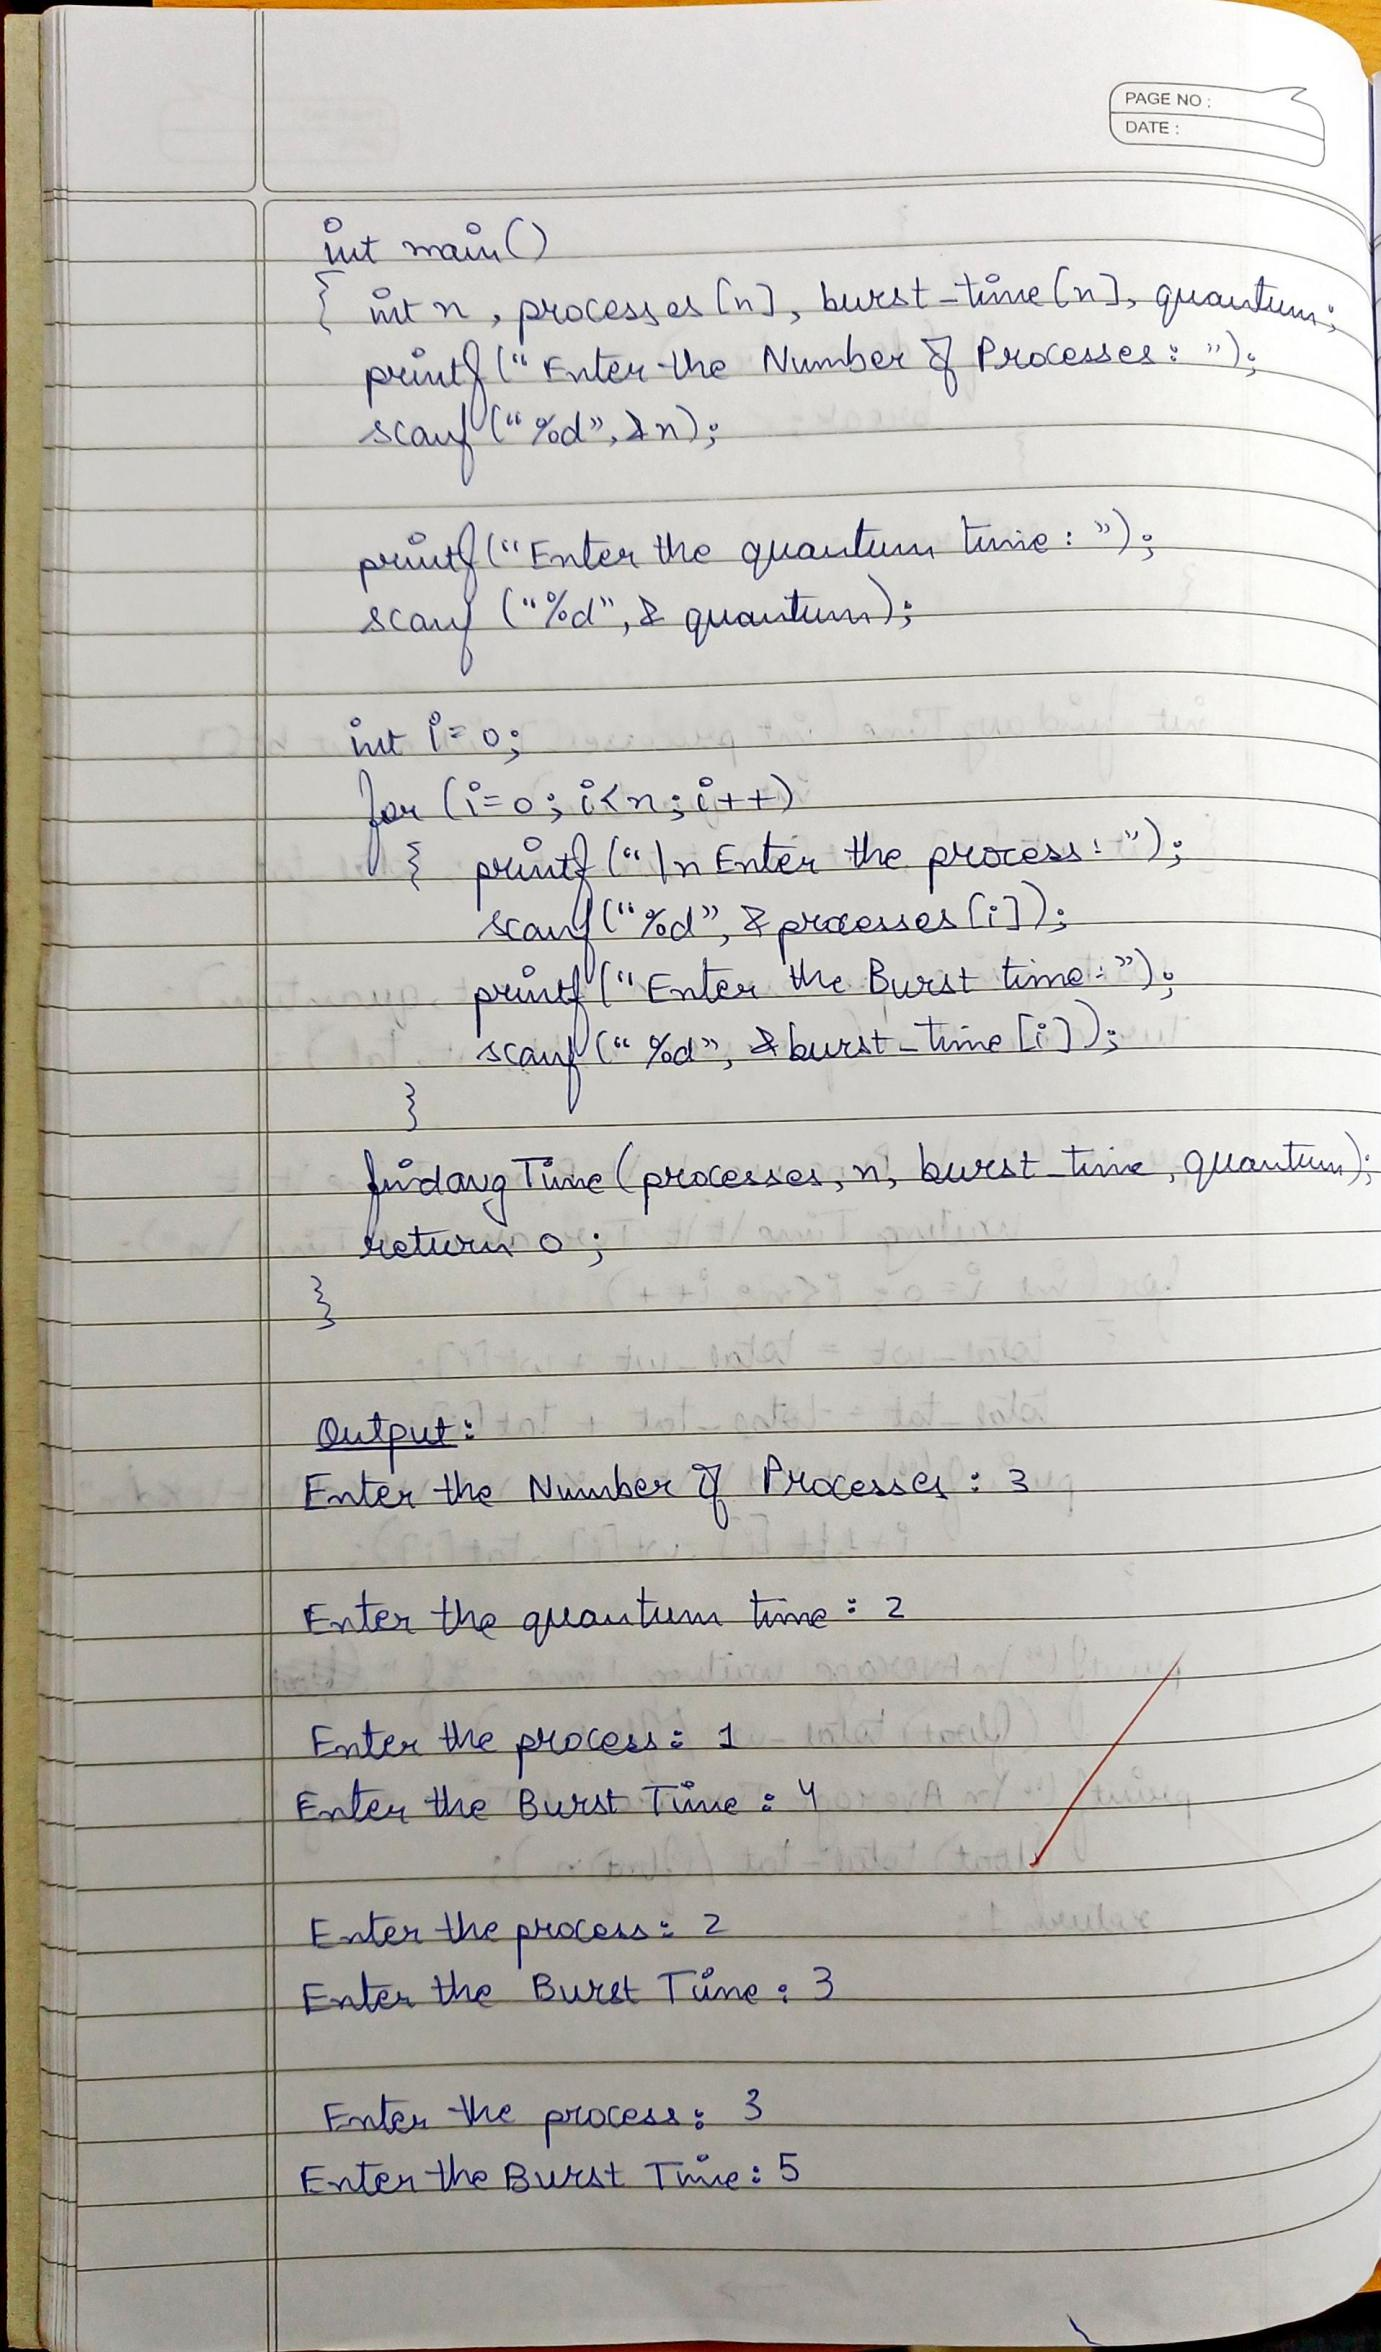 PAGE NO :
DATE :
int main()
{ int n, processes[n], burst_time[n], quantum;
printf("Enter the Number of Processes: ");
scanf("%d", &n);
printf("Enter the quantum time: ");
scanf ("%d", & quantum);
int i=0;
for (i=0; i<n; i++)
{ printf("\n Enter the process: ");
scanf("%d", &processes[i]);
printf("Enter the Burst time:");
scanf("%d", &burst_time[i]);
}
findavgTime(processes, n, burst_time, quantum);
return 0;
}
Output:
Enter the Number of Processes: 3
Enter the quantum time: 2
Enter the process: 1
Enter the Burst Time: 4
Enter the process: 2
Enter the Burst Time: 3
Enter the process: 3
Enter the Burst Time: 5